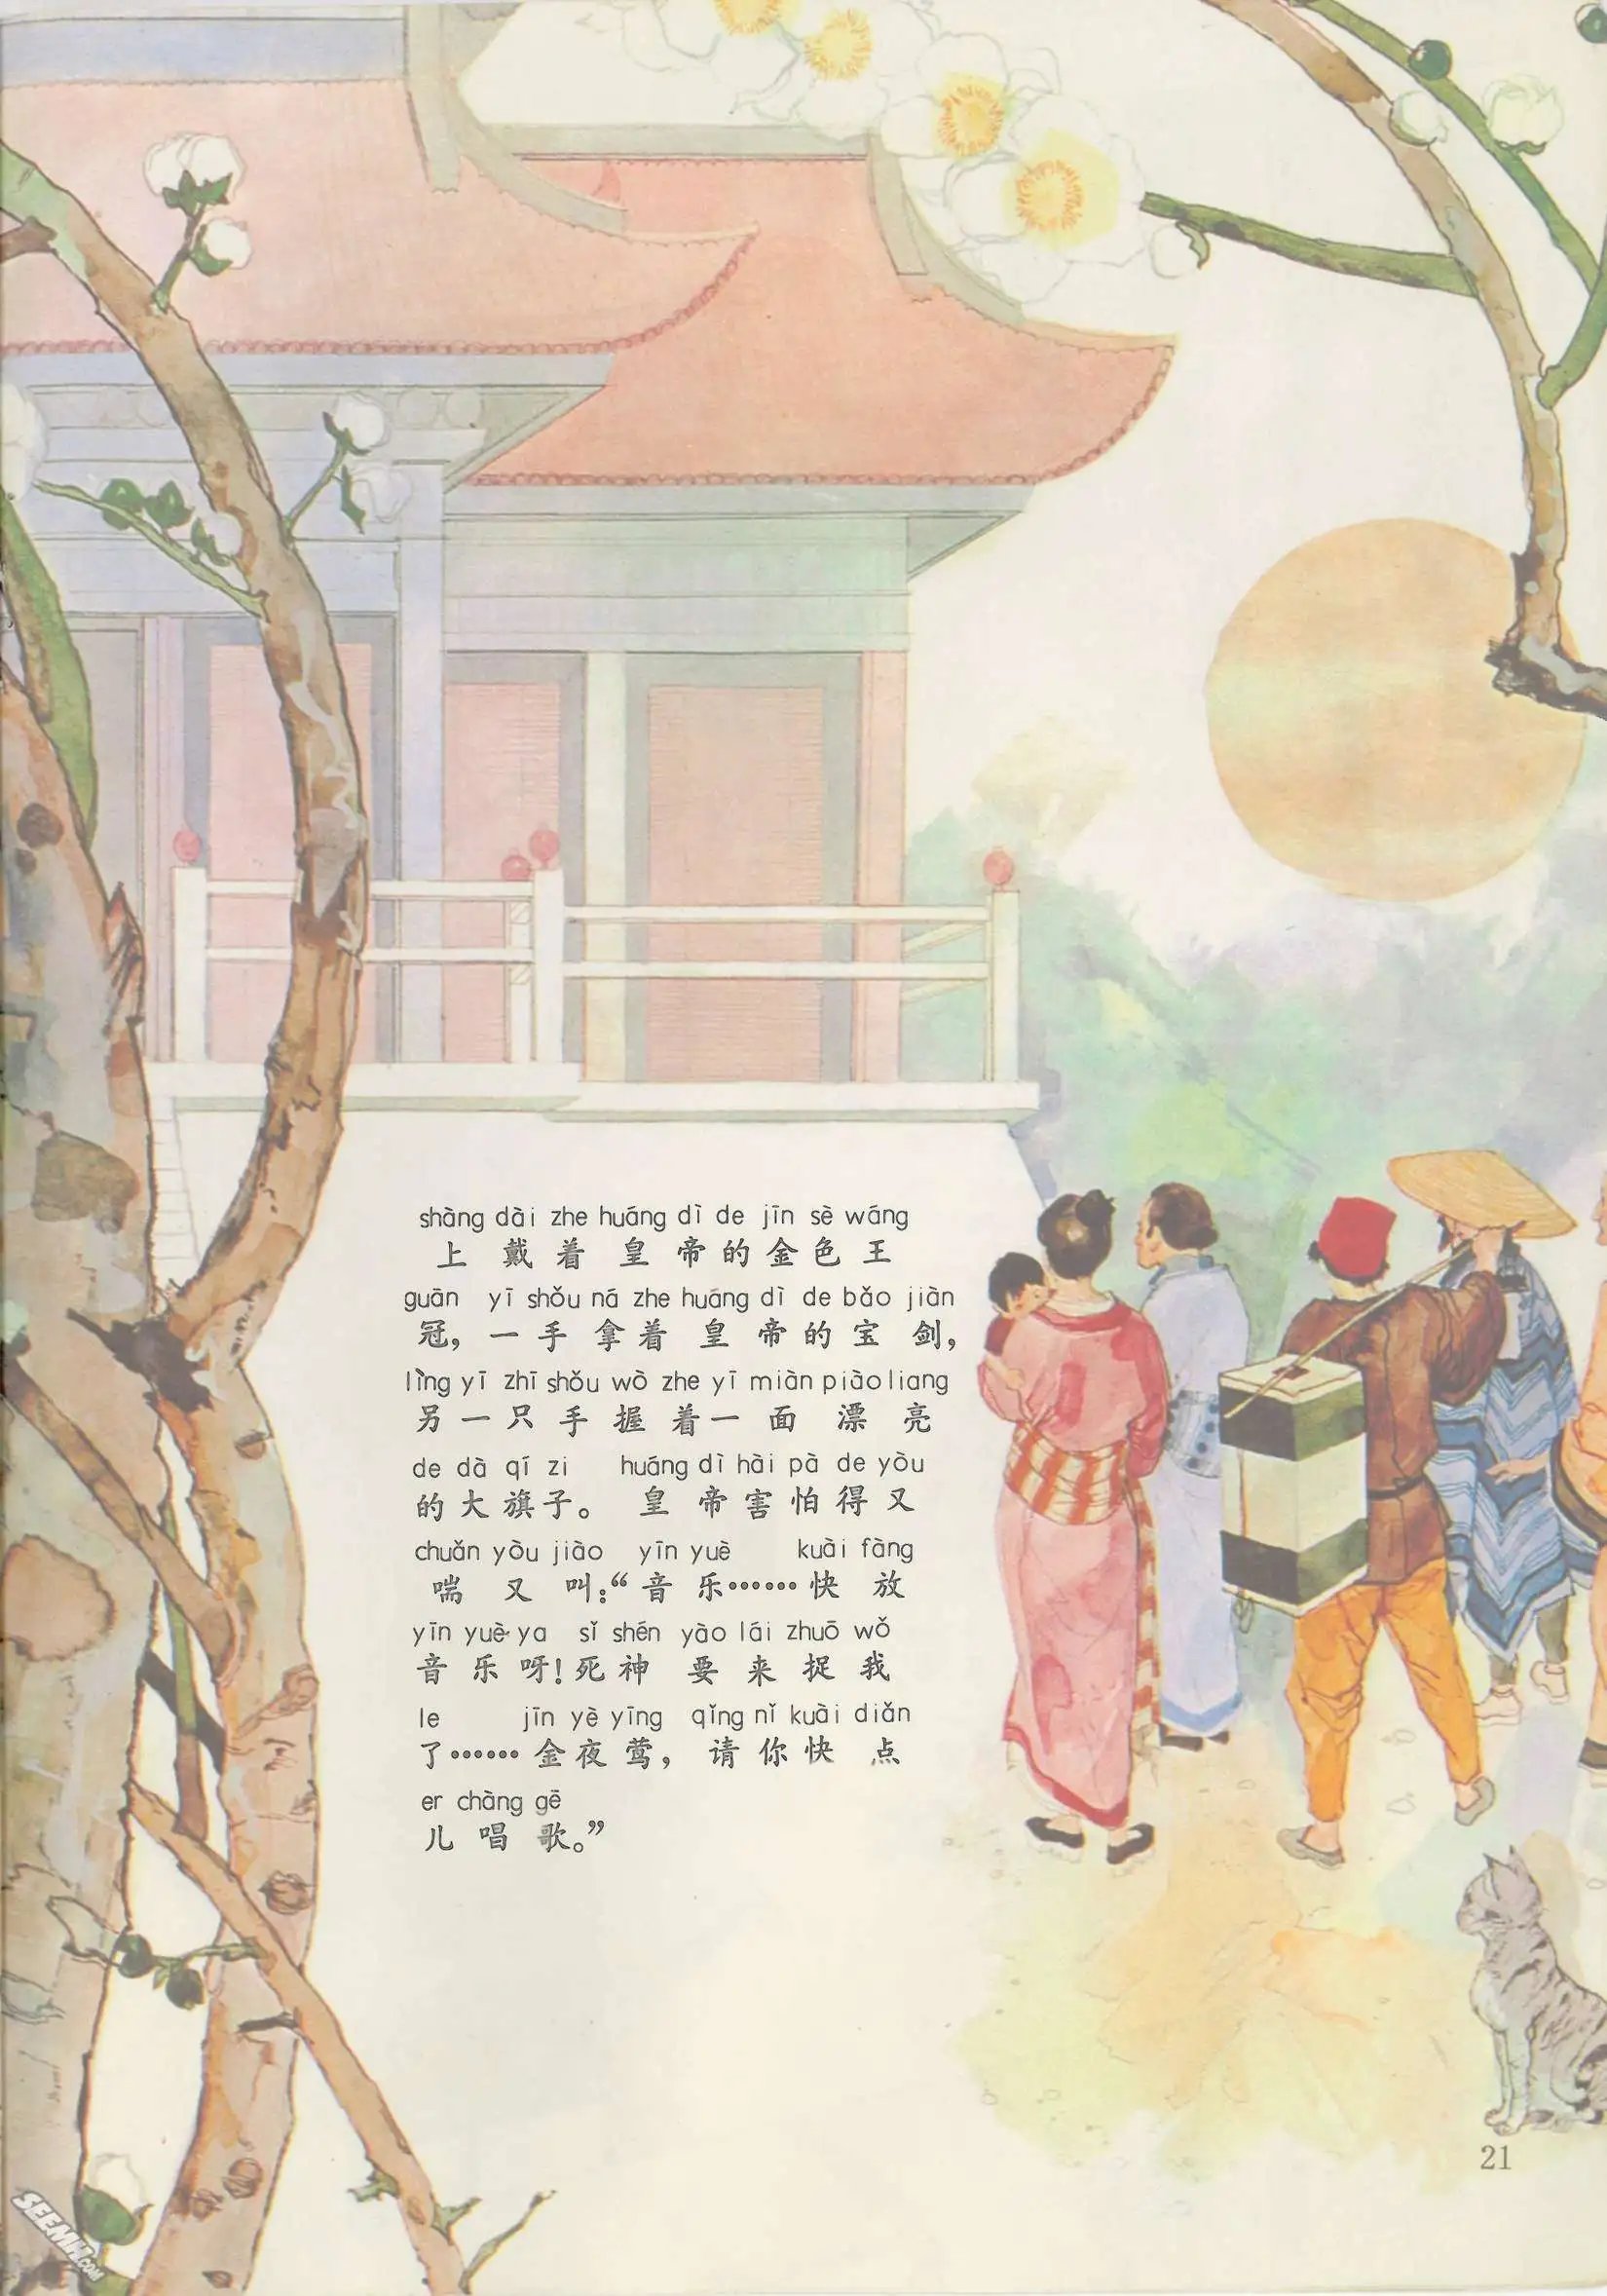 shàng dài zhe huáng dì de jīn sè wáng
上戴着皇帝的金色王
guān yī shǒu ná zhe huáng dì de bǎo jiàn
冠，一手拿着皇帝的宝剑，
lìng yī zhī shǒu wò zhe yī miàn piào liang
另一只手握着一面漂亮
de dà qí zi huáng dì hài pà de yòu
的大旗子。皇帝害怕得又
chuǎn yòu jiào yīn yuè kuài fàng
喘又叫：“音乐……快放
yīn yuè ya sǐ shén yào lái zhuō wǒ
音乐呀！死神要来捉我
le jīn yè yīng qǐng nǐ kuài diǎn
了……金夜莺，请你快点
er chàng gē
儿唱歌。”
21
SEEMH.COM